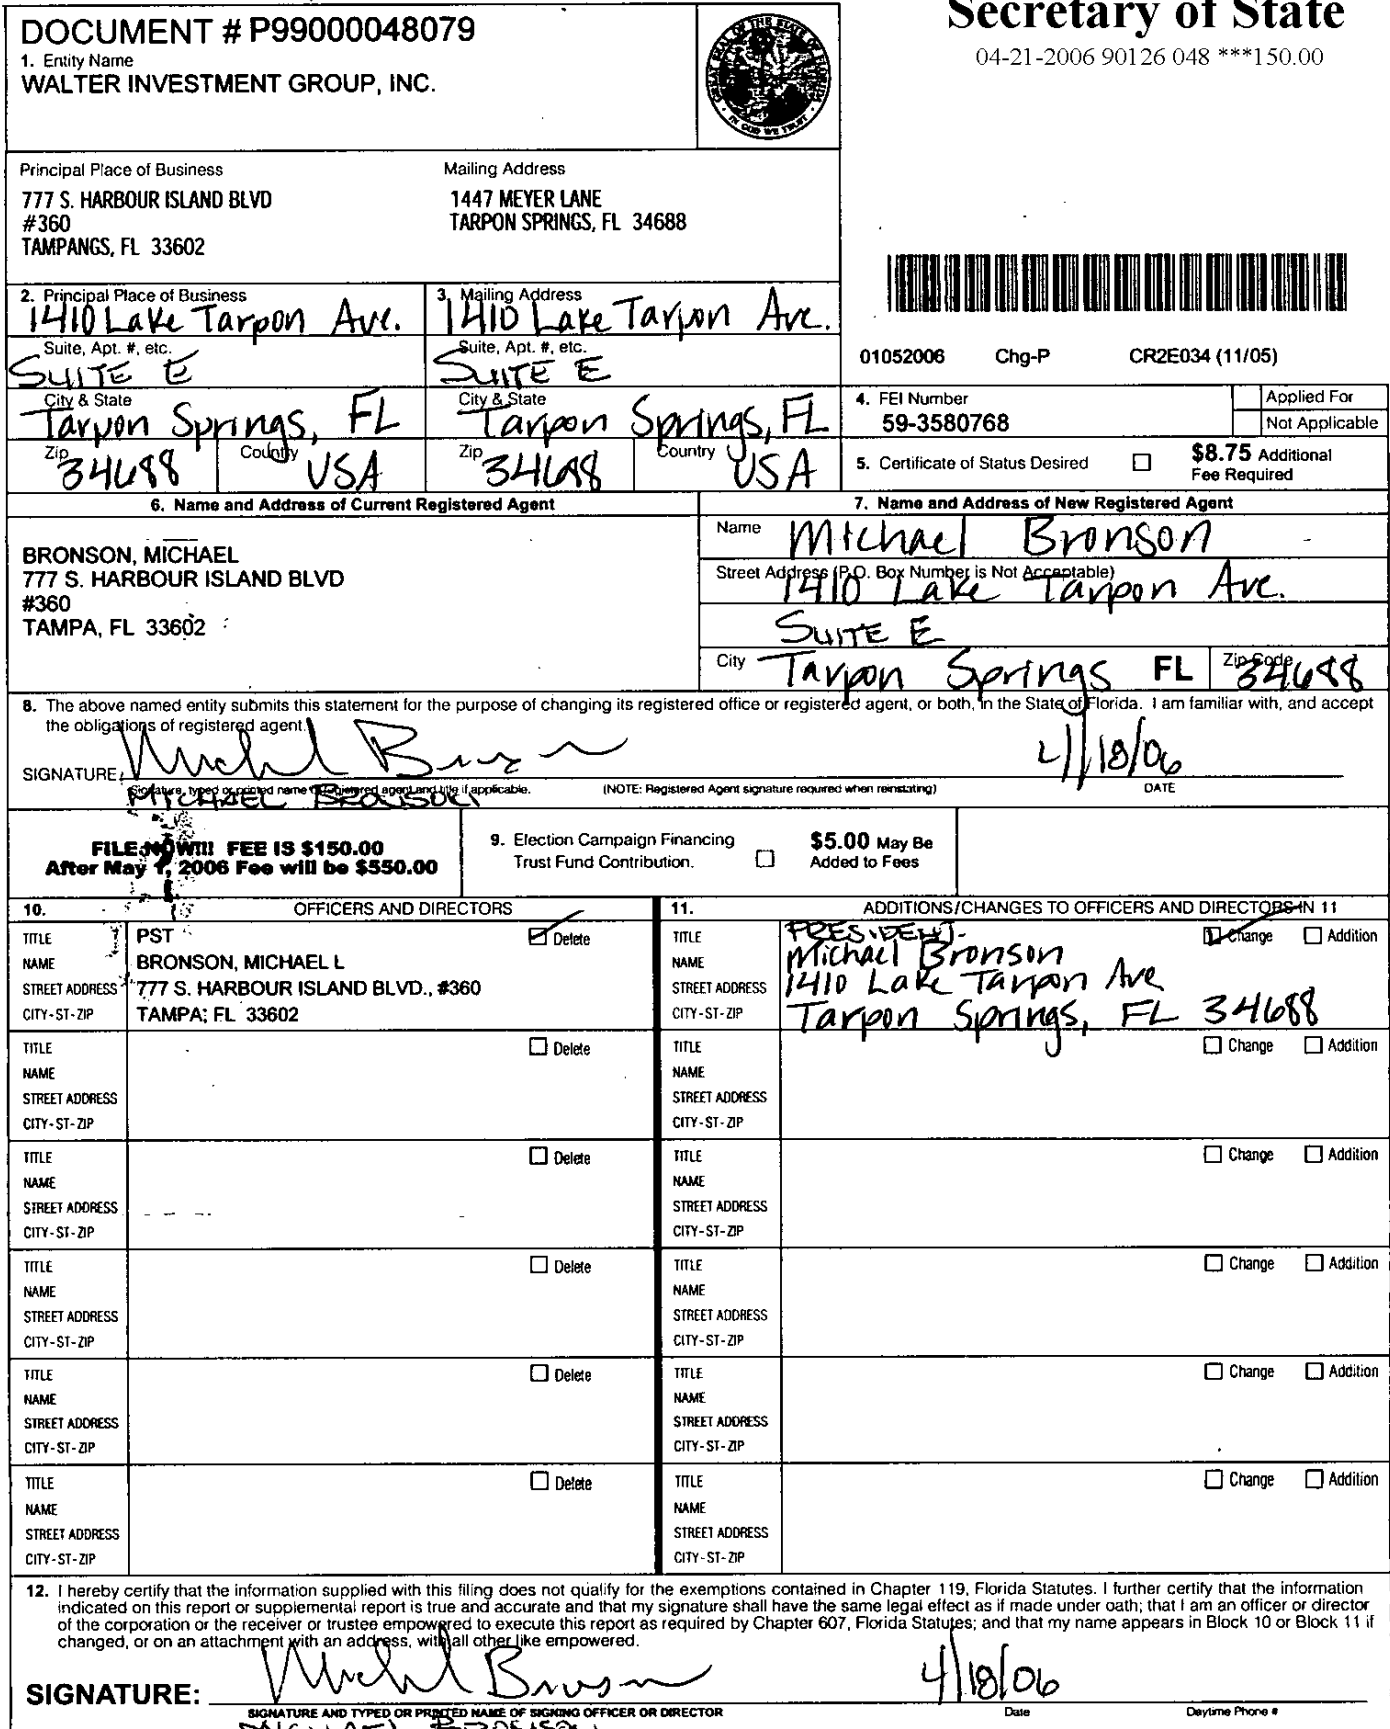 Secretary of State
04-21-2006 90126 048 ***150.00
DOCUMENT # P99000048079
1. Entity Name
WALTER INVESTMENT GROUP, INC.
GREAT SEAL OF THE STATE OF FLORIDA
IN GOD WE TRUST
Principal Place of Business
777 S. HARBOUR ISLAND BLVD
#360
TAMPANGS, FL 33602
Mailing Address
1447 MEYER LANE
TARPON SPRINGS, FL 34688
2. Principal Place of Business
1410 Lake Tarpon Ave.
Suite, Apt. #, etc.
SUITE E
City & State
Tarpon Springs, FL
Zip
34688
Country
USA
3. Mailing Address
1410 Lake Tarpon Ave.
Suite, Apt. #, etc.
SUITE E
City & State
Tarpon Springs, FL
Zip
34688
Country
USA
01052006 Chg-P CR2E034 (11/05)
4. FEI Number
59-3580768
Applied For
Not Applicable
5. Certificate of Status Desired
$8.75 Additional
Fee Required
6. Name and Address of Current Registered Agent
BRONSON, MICHAEL
777 S. HARBOUR ISLAND BLVD
#360
TAMPA, FL 33602
7. Name and Address of New Registered Agent
Name Michael Bronson
Street Address (P.O. Box Number is Not Acceptable)
1410 Lake Tarpon Ave.
SUITE E
City Tarpon Springs FL Zip Code 34688
8. The above named entity submits this statement for the purpose of changing its registered office or registered agent, or both, in the State of Florida. I am familiar with, and accept
the obligations of registered agent.
SIGNATURE Michael Bronson 4/18/06
Signature, typed or printed name of registered agent and title if applicable. (NOTE: Registered Agent signature required when reinstating) DATE
MICHAEL BRONSON
FILE NOW!!! FEE IS $150.00
After May 1, 2006 Fee will be $550.00
9. Election Campaign Financing
Trust Fund Contribution.
$5.00 May Be
Added to Fees
10. OFFICERS AND DIRECTORS
TITLE PST Delete
NAME BRONSON, MICHAEL L
STREET ADDRESS 777 S. HARBOUR ISLAND BLVD., #360
CITY-ST-ZIP TAMPA, FL 33602
TITLE Delete
NAME
STREET ADDRESS
CITY-ST-ZIP
TITLE Delete
NAME
STREET ADDRESS
CITY-ST-ZIP
TITLE Delete
NAME
STREET ADDRESS
CITY-ST-ZIP
TITLE Delete
NAME
STREET ADDRESS
CITY-ST-ZIP
TITLE Delete
NAME
STREET ADDRESS
CITY-ST-ZIP
11. ADDITIONS/CHANGES TO OFFICERS AND DIRECTORS IN 11
TITLE PRESIDENT Change Addition
NAME Michael Bronson
STREET ADDRESS 1410 Lake Tarpon Ave
CITY-ST-ZIP Tarpon Springs, FL 34688
TITLE Change Addition
NAME
STREET ADDRESS
CITY-ST-ZIP
TITLE Change Addition
NAME
STREET ADDRESS
CITY-ST-ZIP
TITLE Change Addition
NAME
STREET ADDRESS
CITY-ST-ZIP
TITLE Change Addition
NAME
STREET ADDRESS
CITY-ST-ZIP
TITLE Change Addition
NAME
STREET ADDRESS
CITY-ST-ZIP
12. I hereby certify that the information supplied with this filing does not qualify for the exemptions contained in Chapter 119, Florida Statutes. I further certify that the information
indicated on this report or supplemental report is true and accurate and that my signature shall have the same legal effect as if made under oath; that I am an officer or director
of the corporation or the receiver or trustee empowered to execute this report as required by Chapter 607, Florida Statutes; and that my name appears in Block 10 or Block 11 if
changed, or on an attachment with an address, with all other like empowered.
SIGNATURE: Michael Bronson 4/18/06
SIGNATURE AND TYPED OR PRINTED NAME OF SIGNING OFFICER OR DIRECTOR Date Daytime Phone #
MICHAEL BRONSON